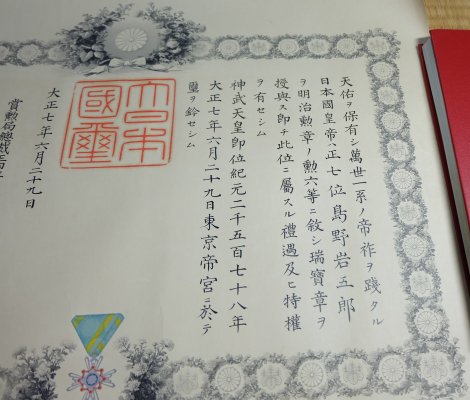 天佑ヲ保有シ萬世一系ノ帝祚ヲ踐タル
日本國皇帝ハ正七位島野岩五郎
ヲ明治勲章ノ勲六等ニ敘シ瑞寶章ヲ
授與ス即チ此位ニ屬スル禮遇及ヒ特權
ヲ有セシム
神武天皇即位紀元二千五百七十八年
大正七年六月二十九日東京帝宮ニ於テ
璽ヲ鈐セシム
大日本
國璽
大正七年六月二十九日
賞勲局總裁正四